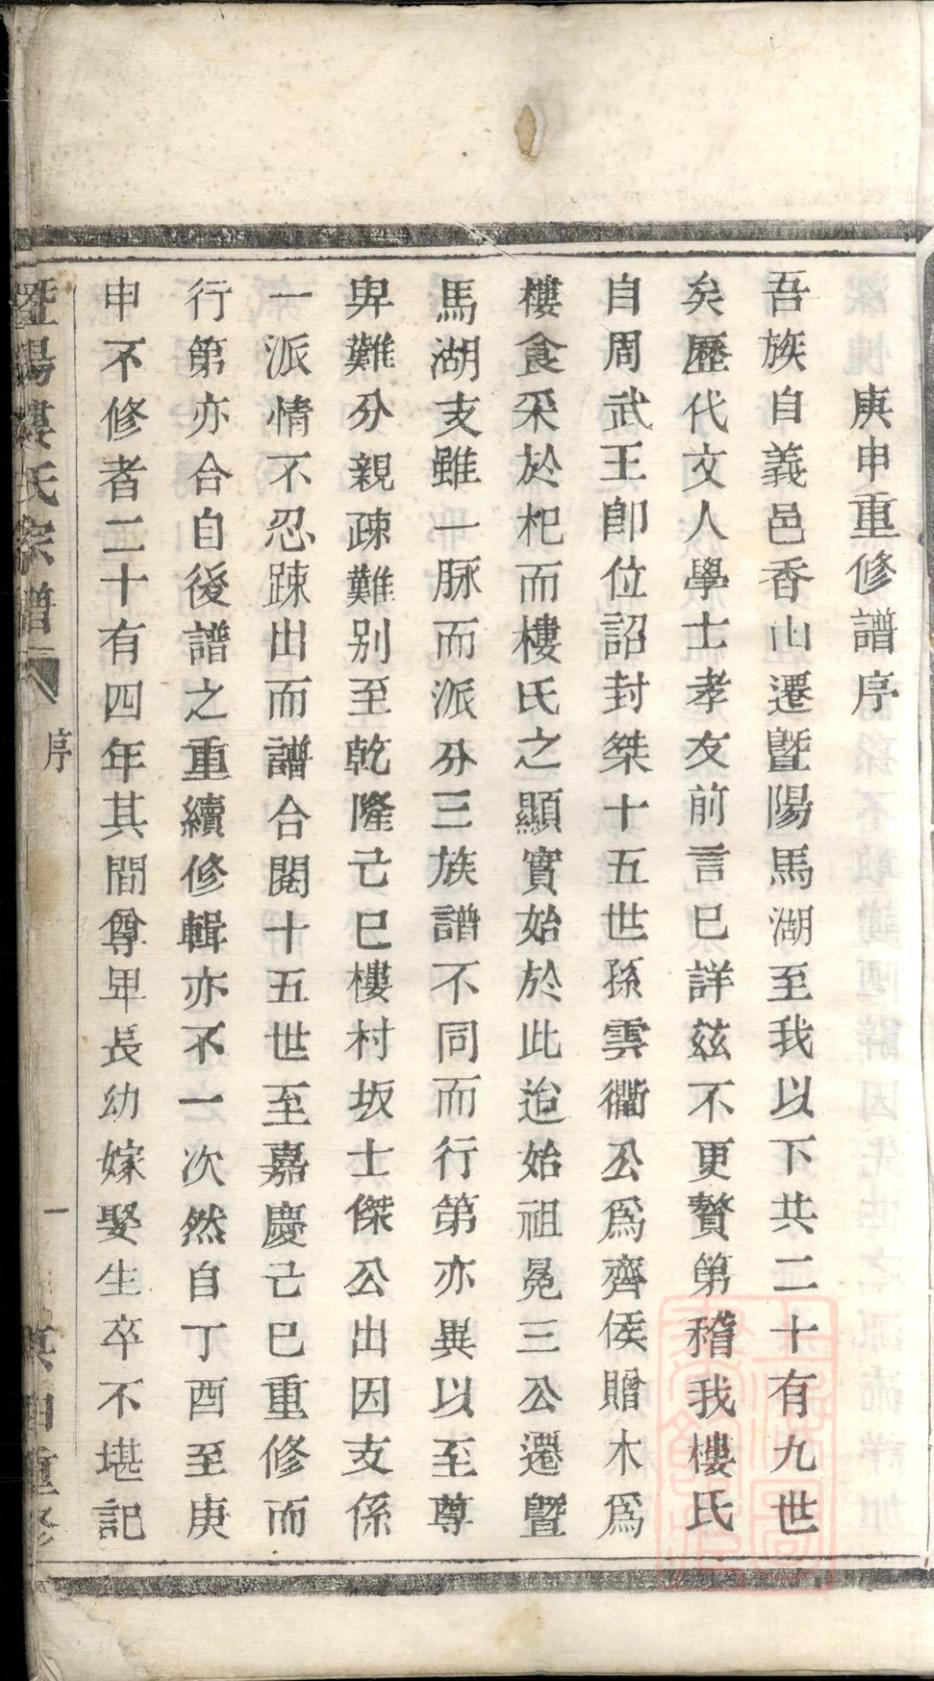 庚申重修譜序
吾族自義邑香山遷暨陽馬湖至我以下共二十有九世
矣歷代文人學士孝友前言已詳茲不更贅第稽我樓氏
自周武王卽位詔封桀十五世孫雲衢公爲齊侯贈木爲
樓食采於杞而樓氏之顯實始於此迨始祖晃三公遷暨
馬湖支雖一脉而派分三族譜不同而行第亦異以至尊
卑難分親疎難别至乾隆己巳樓村坂士傑公出因支係
一派情不忍踈出而譜合閱十五世至嘉慶己巳重修而
行第亦合自後譜之重續修輯亦不一次然自丁酉至庚
申不修者二十有四年其間尊卑長幼嫁娶生卒不堪記
暨陽樓氏宗譜
序
一
庚申重修